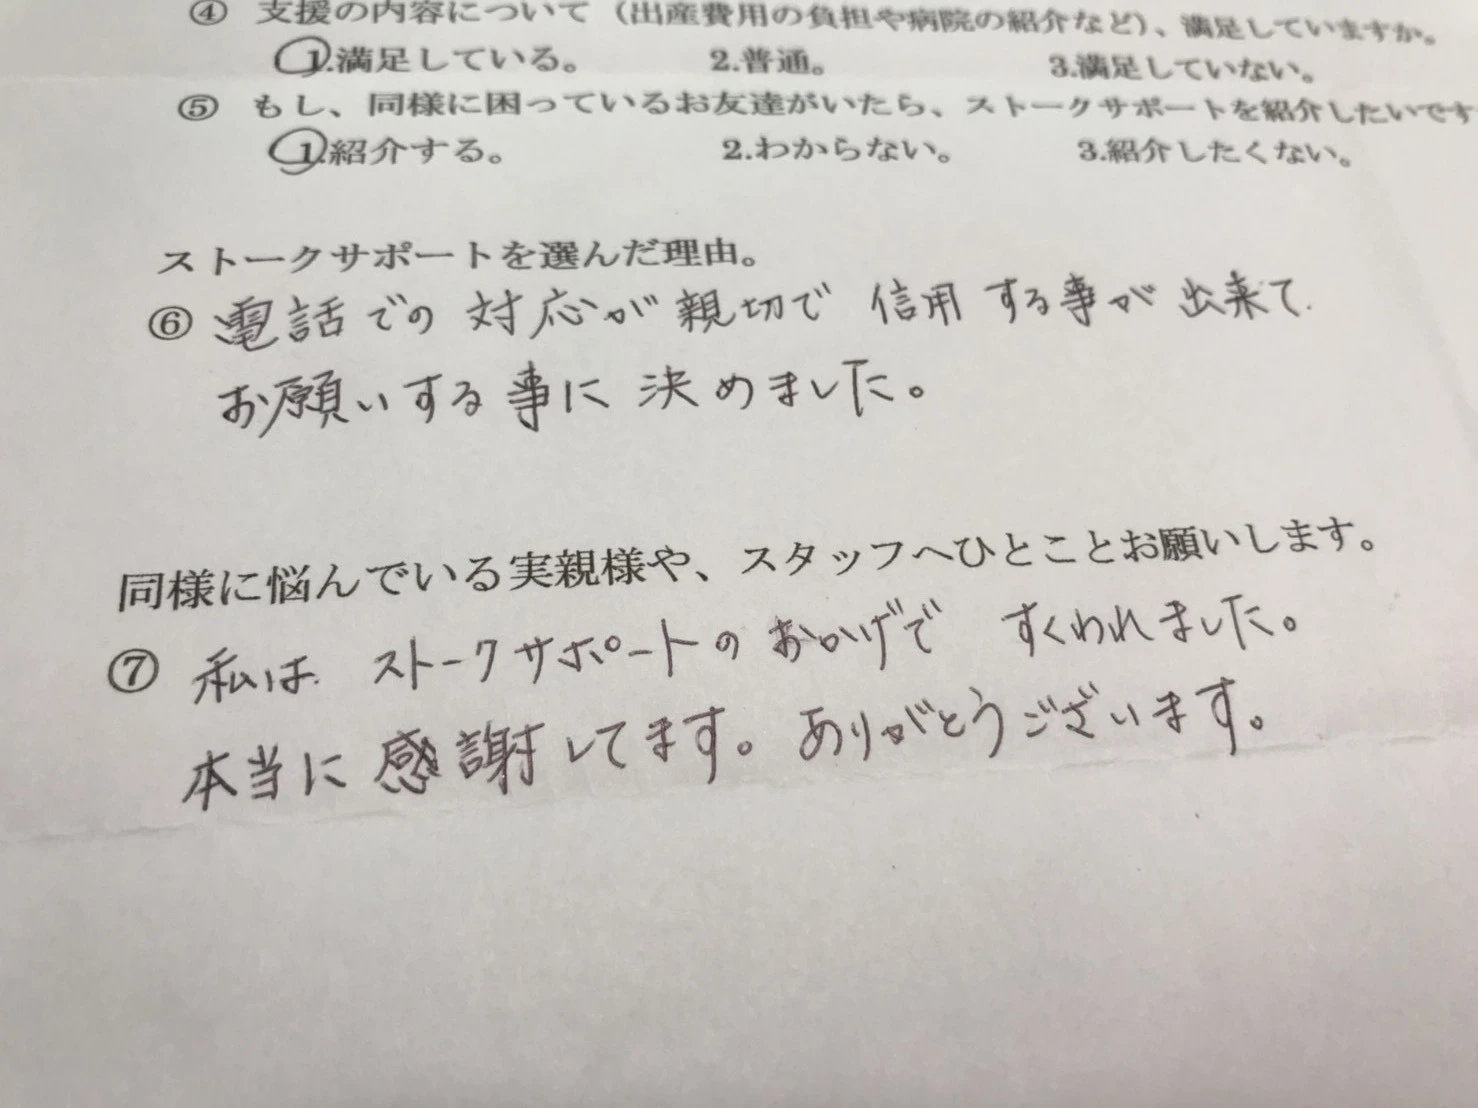 ④ 支援の内容について（出産費用の負担や病院の紹介など）、満足していますか。
1.満足している。 2.普通。 3.満足していない。
⑤ もし、同様に困っているお友達がいたら、ストークサポートを紹介したいです
1.紹介する。 2.わからない。 3.紹介したくない。
ストークサポートを選んだ理由。
⑥ 電話での対応が親切で 信用する事が出来て
お願いする事に決めました。
同様に悩んでいる実親様や、スタッフへひとことお願いします。
⑦ 私は ストークサポートのおかげで すくわれました。
本当に感謝してます。ありがとうございます。